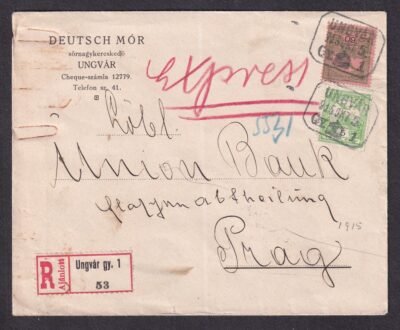 DEUTSCH MÓR
sörnagykereskedő
UNGVÁR
Cheque-számla 12779.
Telefon sz. 41.
Express
5531
UNGVÁR
UNGVÁR
Löbl.
Union Bank
abtheilung
1915
Prag
R
Ajánlott
Ungvár gy. 1
53